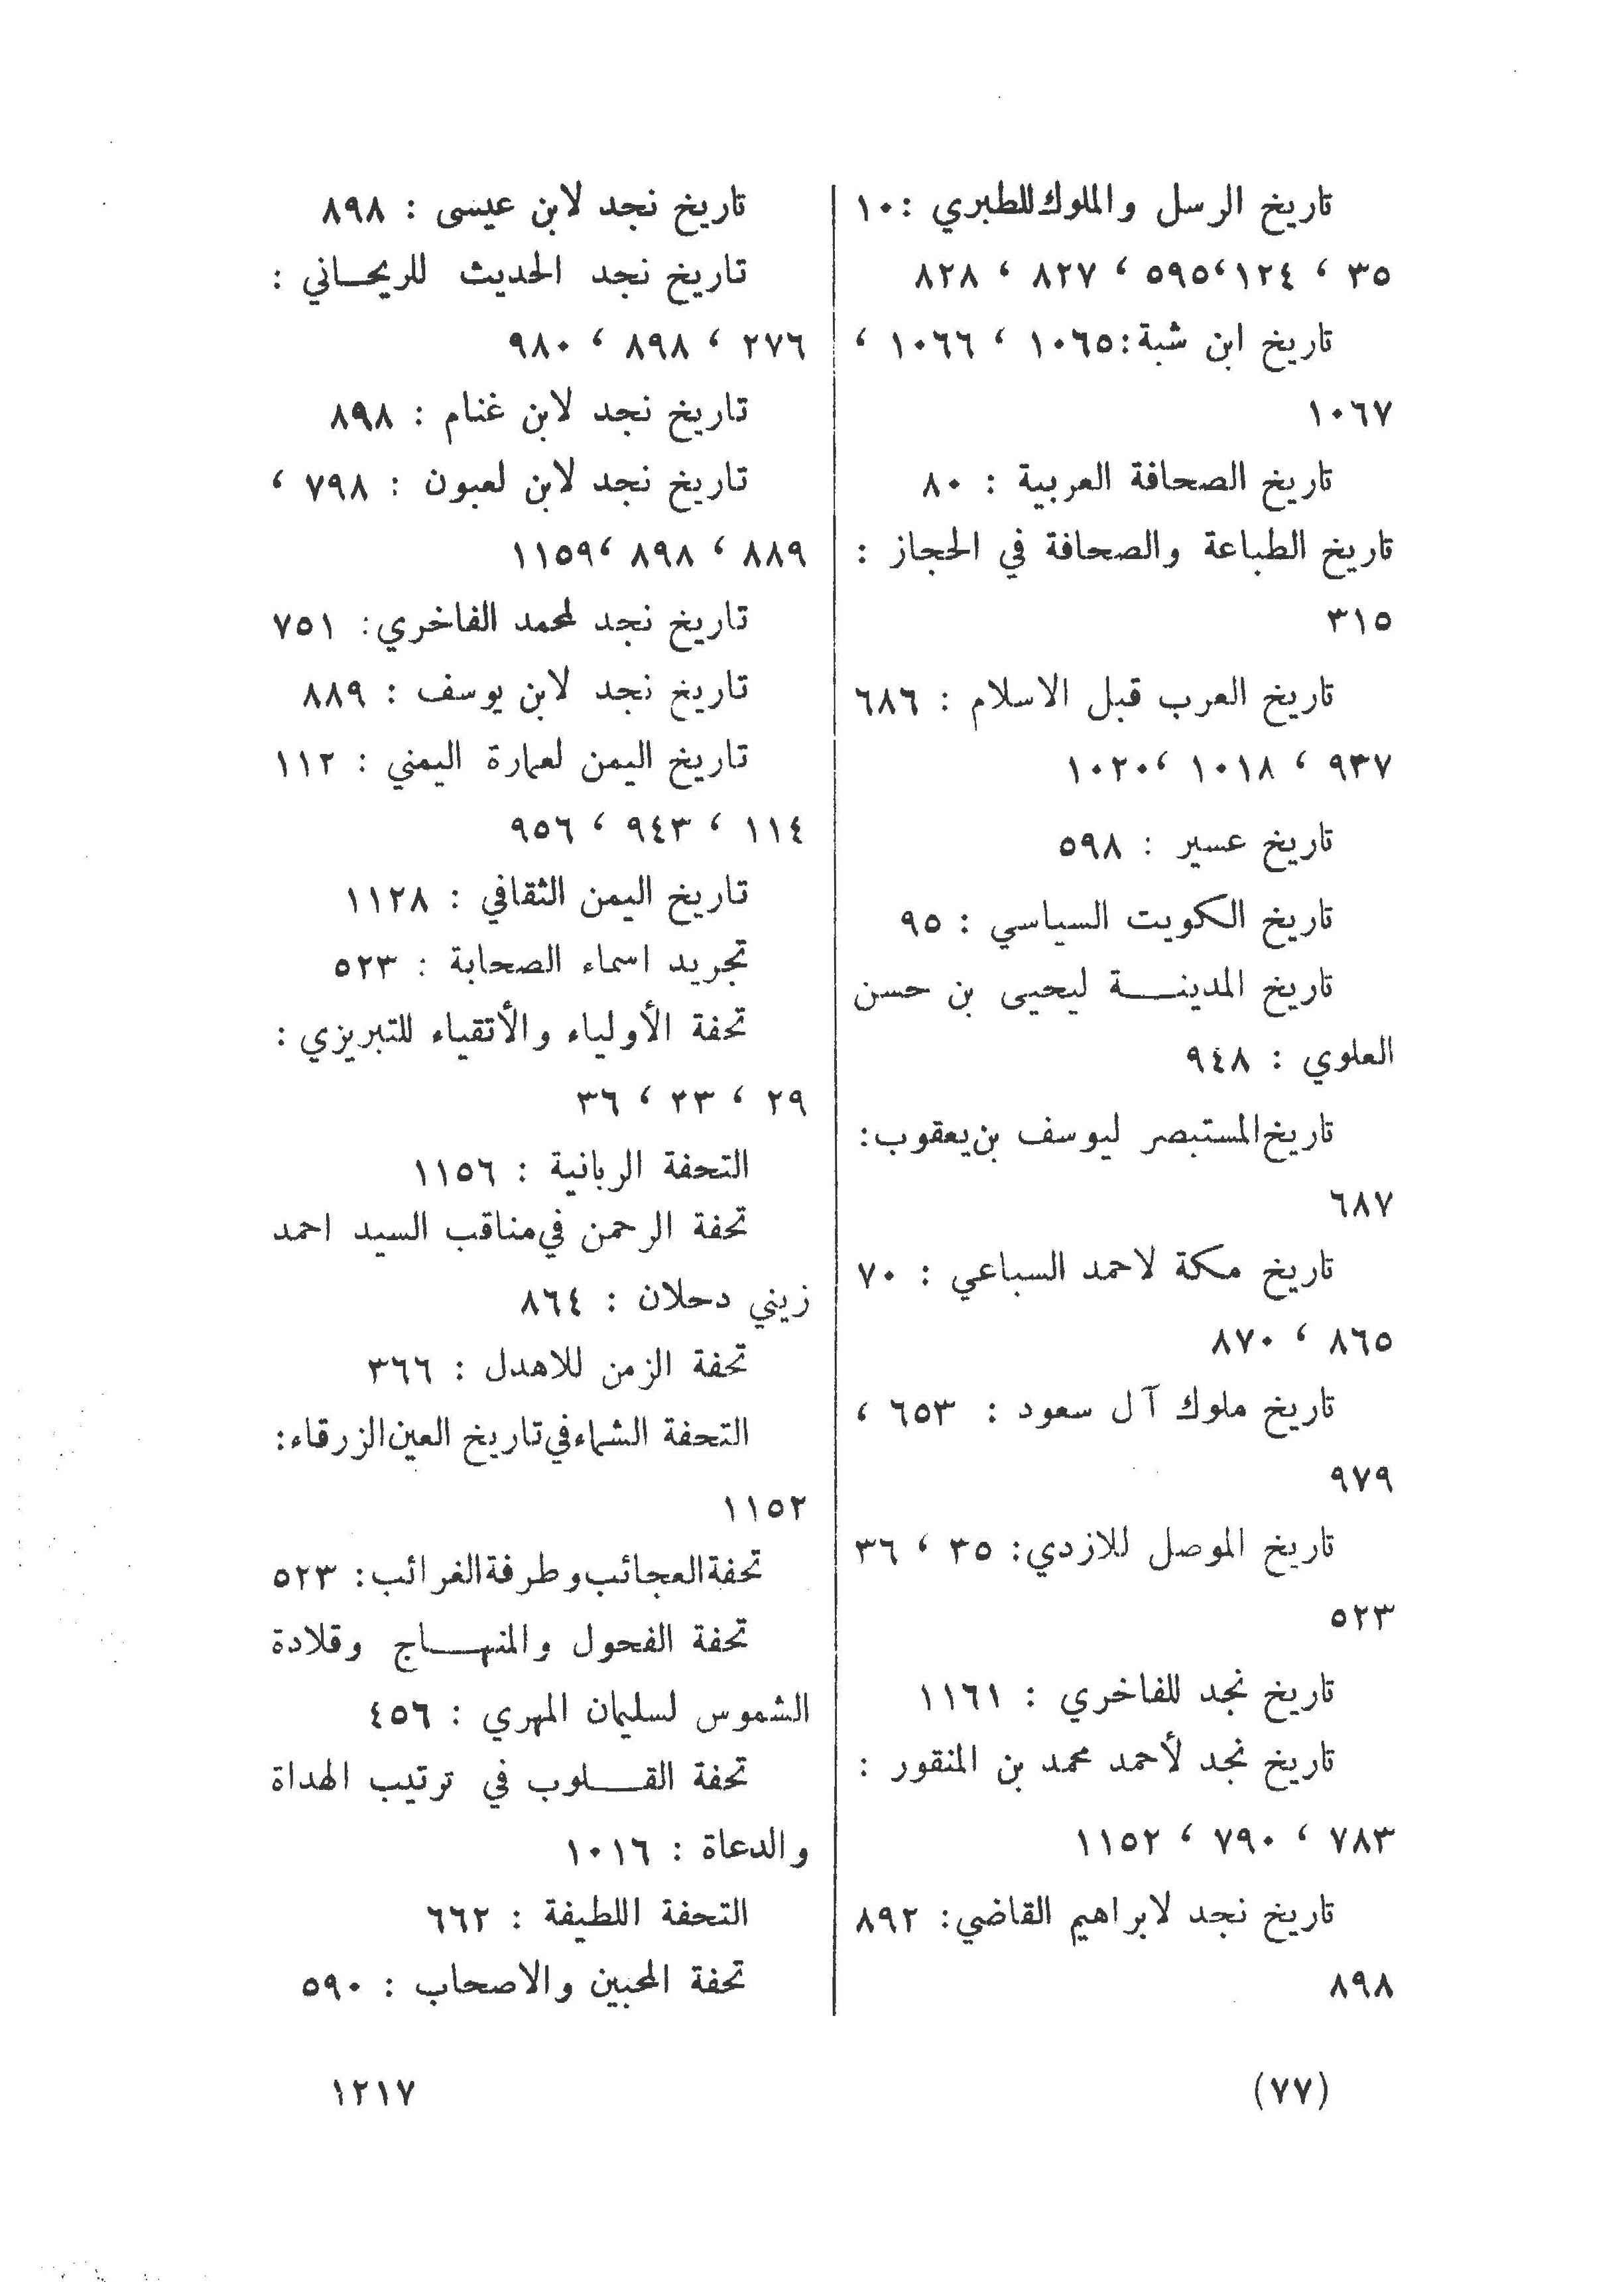 تاريخ الرسل والملوك للطبري : ١٠
٣٥ ، ١٢٤ ،٥٩٥ ، ٨٢٧ ، ٨٢٨
تاريخ ابن شبة : ١٠٦٥ ، ١٠٦٦ ،
١٠٦٧
تاريخ الصحافة العربية : ٨٠
تاريخ الطباعة والصحافة في الحجاز :
٣١٥
تاريخ العرب قبل الاسلام : ٦٨٦
٩٣٧ ، ١٠١٨ ،١٠٢٠
تاريخ عسير : ٥٩٨
تاريخ الكويت السياسي : ٩٥
تاريخ المدينـــة ليحيى بن حسن
العلوي : ٩٤٨
تاريخ المستبصر ليوسف بن يعقوب :
٦٨٧
تاريخ مكة لاحمد السباعي : ٧٠
٨٦٥ ، ٨٧٠
تاريخ ملوك آل سعود : ٦٥٣ ،
٩٧٩
تاريخ الموصل للازدي : ٣٥ ، ٣٦
٥٢٣
تاريخ نجد للفاخري : ١١٦١
تاريخ نجد لأحمد محمد بن المنقور :
٧٨٣ ، ٧٩٠ ، ١١٥٢
تاريخ نجد لابراهيم القاضي : ٨٩٢
٨٩٨
تاريخ نجد لابن عيسى : ٨٩٨
تاريخ نجد الحديث للريحـاني :
٢٧٦ ، ٨٩٨ ، ٩٨٠
تاريخ نجد لابن غنام : ٨٩٨
تاريخ نجد لابن لعبون : ٧٩٨ ،
٨٨٩ ، ٨٩٨ ،١١٥٩
تاريخ نجد لمحمد الفاخري : ٧٥١
تاريخ نجد لابن يوسف : ٨٨٩
تاريخ اليمن لعمارة اليمني : ١١٢
١١٤ ، ٩٤٣ ، ٩٥٦
تاريخ اليمن الثقافي : ١١٢٨
تجريد اسماء الصحابة : ٥٢٣
تحفة الأولياء والأتقياء للتبريزي :
٢٩ ، ٢٣ ، ٣٦
التحفة الربانية : ١١٥٦
تحفة الرحمن في مناقب السيد احمد
زيني دحلان : ٨٦٤
تحفة الزمن للاهدل : ٣٦٦
التحفة الشماء في تاريخ العين الزرقاء :
١١٥٢
تحفة العجائب وطرفة الغرائب : ٥٢٣
تحفة الفحول والمنهـــاج وقلادة
الشموس لسليمان المهري : ٤٥٦
تحفة القـــلوب في ترتيب الهداة
والدعاة : ١٠١٦
التحفة اللطيفة : ٦٦٢
تحفة المحبين والاصحاب : ٥٩٠
(٧٧)
١٢١٧